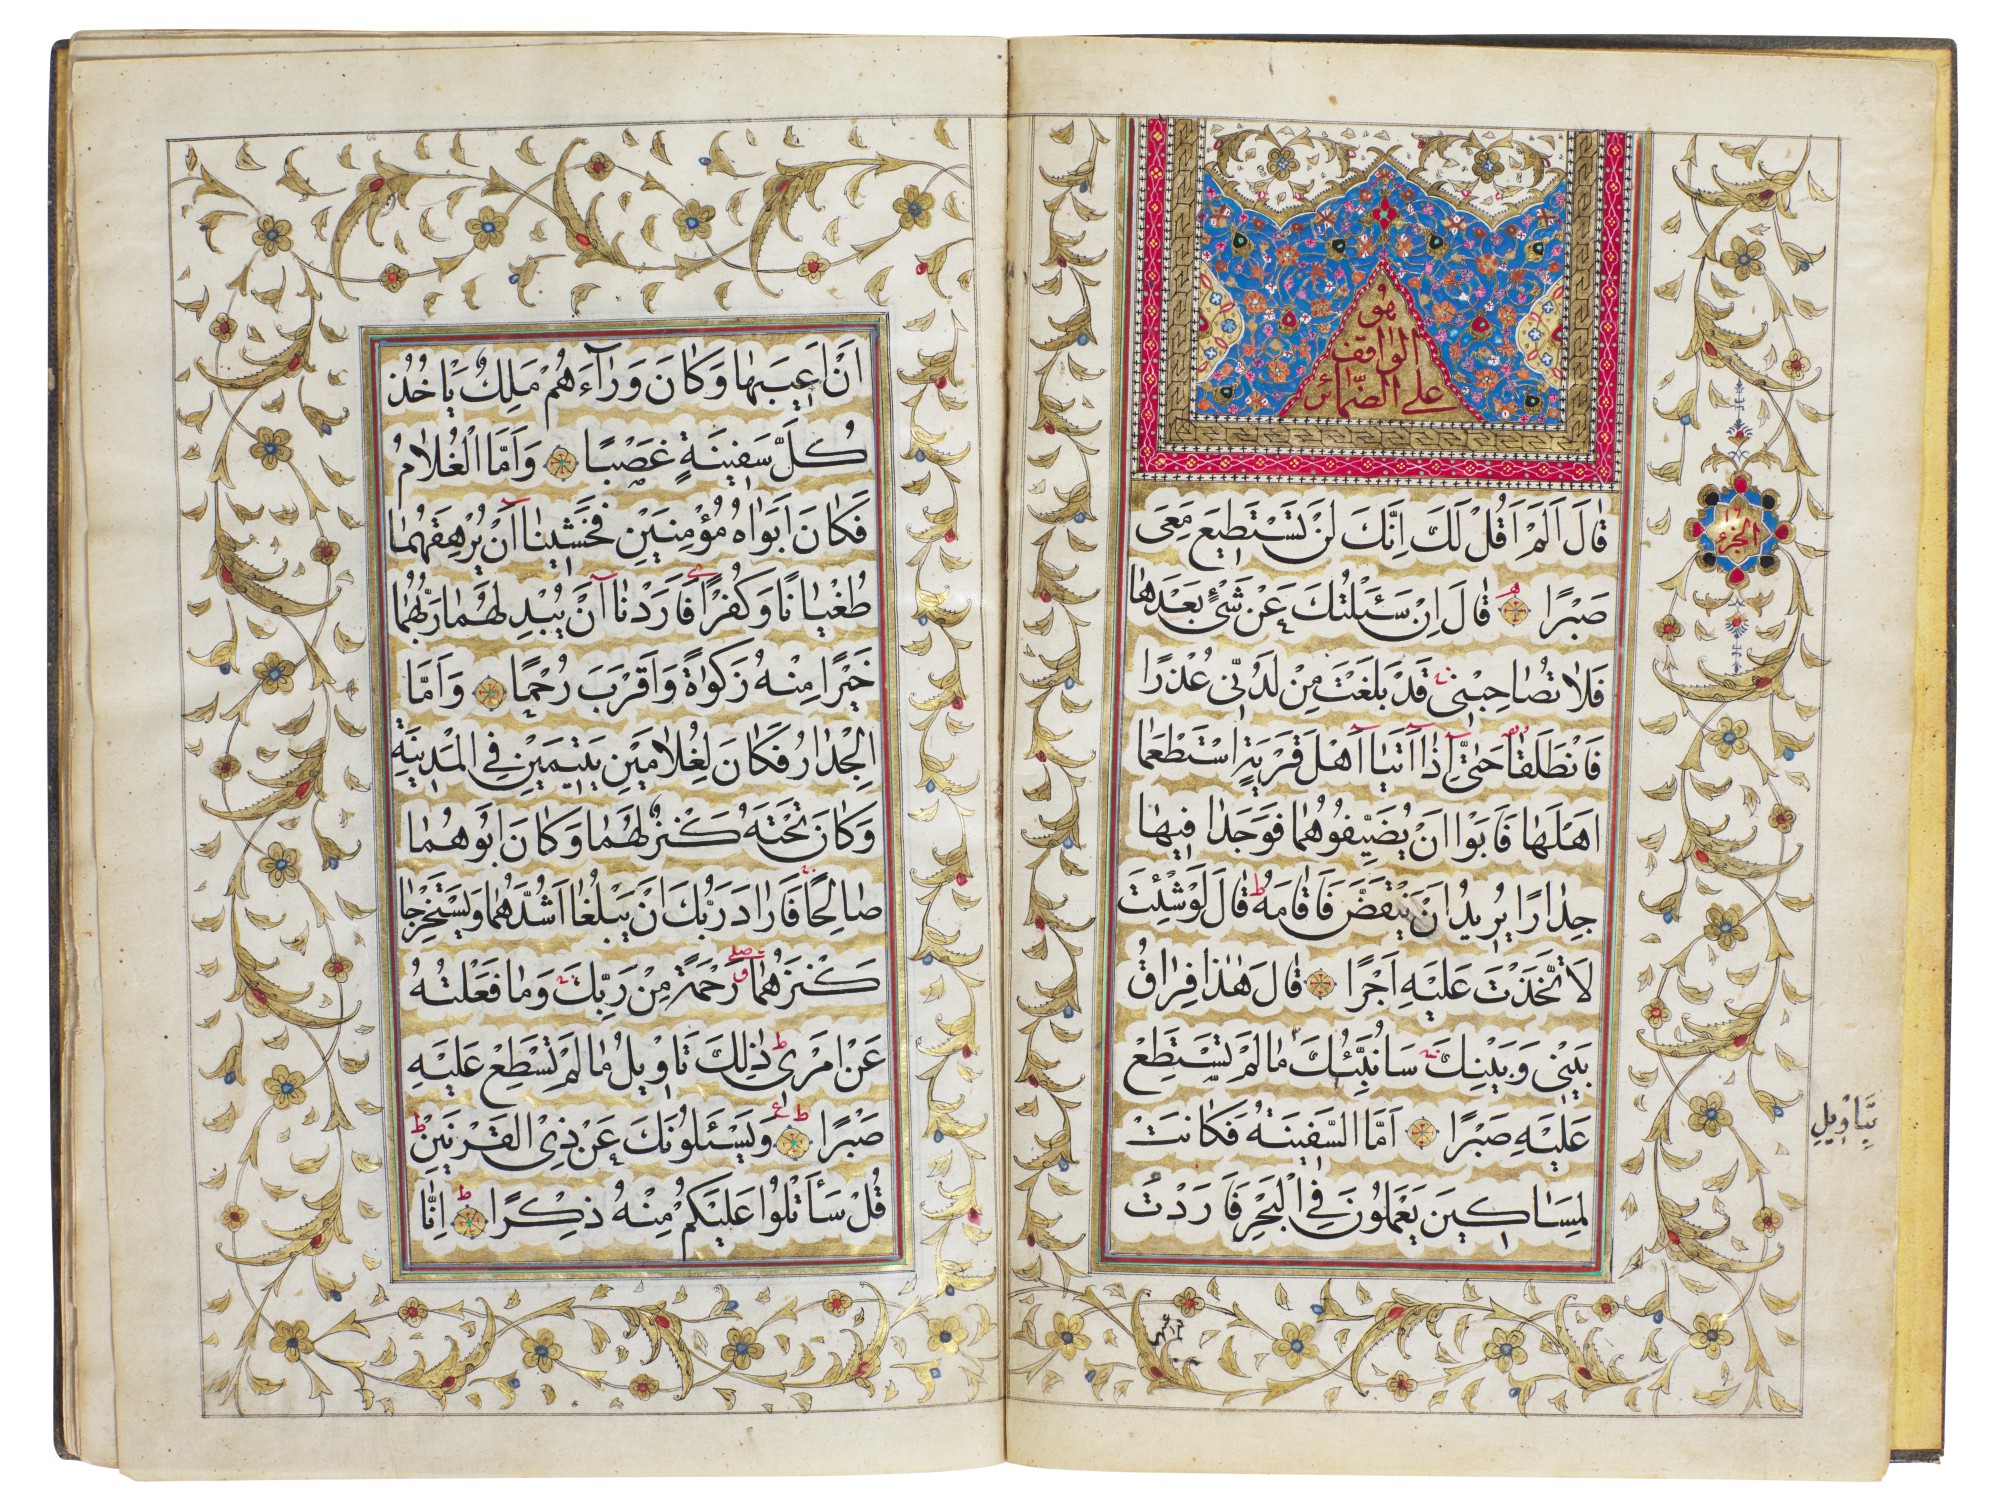 هو
الواقف
على الضمائر
قَالَ اَلَمْ اَقُلْ لَكَ اِنَّكَ لَنْ تَسْتَطٖيعَ مَعِىَ
صَبْرًا قَالَ اِنْ سَئَلْتُكَ عَنْ شَىْءٍ بَعْدَهَا
فَلَا تُصَاحِبْنٖى قَدْ بَلَغْتَ مِنْ لَدُنّٖى عُذْرًا
فَانْطَلَقَا حَتّٰى اِذَا اَتَيَا اَهْلَ قَرْيَةٍ اسْتَطْعَمَا
اَهْلَهَا فَاَبَوْا اَنْ يُضَيِّفُوهُمَا فَوَجَدَا فٖيهَا
جِدَارًا يُرٖيدُ اَنْ يَنْقَضَّ فَاَقَامَهُ قَالَ لَوْ شِئْتَ
لَاتَّخَذْتَ عَلَيْهِ اَجْرًا قَالَ هٰذَا فِرَاقُ
بَيْنٖى وَبَيْنِكَ سَاُنَبِّئُكَ مَا لَمْ تَسْتَطِعْ
عَلَيْهِ صَبْرًا اَمَّا السَّفٖينَةُ فَكَانَتْ
لِمَسَاكٖينَ يَعْمَلُونَ فِى الْبَحْرِ فَاَرَدْتُ
الجزء
بِتَاْوٖيلِ
اَنْ اَعٖيبَهَا وَكَانَ وَرَاءَهُمْ مَلِكٌ يَاْخُذُ
كُلَّ سَفٖينَةٍ غَصْبًا وَاَمَّا الْغُلَامُ
فَكَانَ اَبَوَاهُ مُؤْمِنَيْنِ فَخَشٖينَا اَنْ يُرْهِقَهُمَا
طُغْيَانًا وَكُفْرًا فَاَرَدْنَا اَنْ يُبْدِلَهُمَا رَبُّهُمَا
خَيْرًا مِنْهُ زَكٰوةً وَاَقْرَبَ رُحْمًا وَاَمَّا
الْجِدَارُ فَكَانَ لِغُلَامَيْنِ يَتٖيمَيْنِ فِى الْمَدٖينَةِ
وَكَانَ تَحْتَهُ كَنْزٌ لَهُمَا وَكَانَ اَبُوهُمَا
صَالِحًا فَاَرَادَ رَبُّكَ اَنْ يَبْلُغَا اَشُدَّهُمَا وَيَسْتَخْرِجَا
كَنْزَهُمَا رَحْمَةً مِنْ رَبِّكَ وَمَا فَعَلْتُهُ
عَنْ اَمْرٖى ذٰلِكَ تَاْوٖيلُ مَا لَمْ تَسْطِعْ عَلَيْهِ
صَبْرًا وَيَسْئَلُونَكَ عَنْ ذِى الْقَرْنَيْنِ
قُلْ سَاَتْلُوا عَلَيْكُمْ مِنْهُ ذِكْرًا اِنَّا